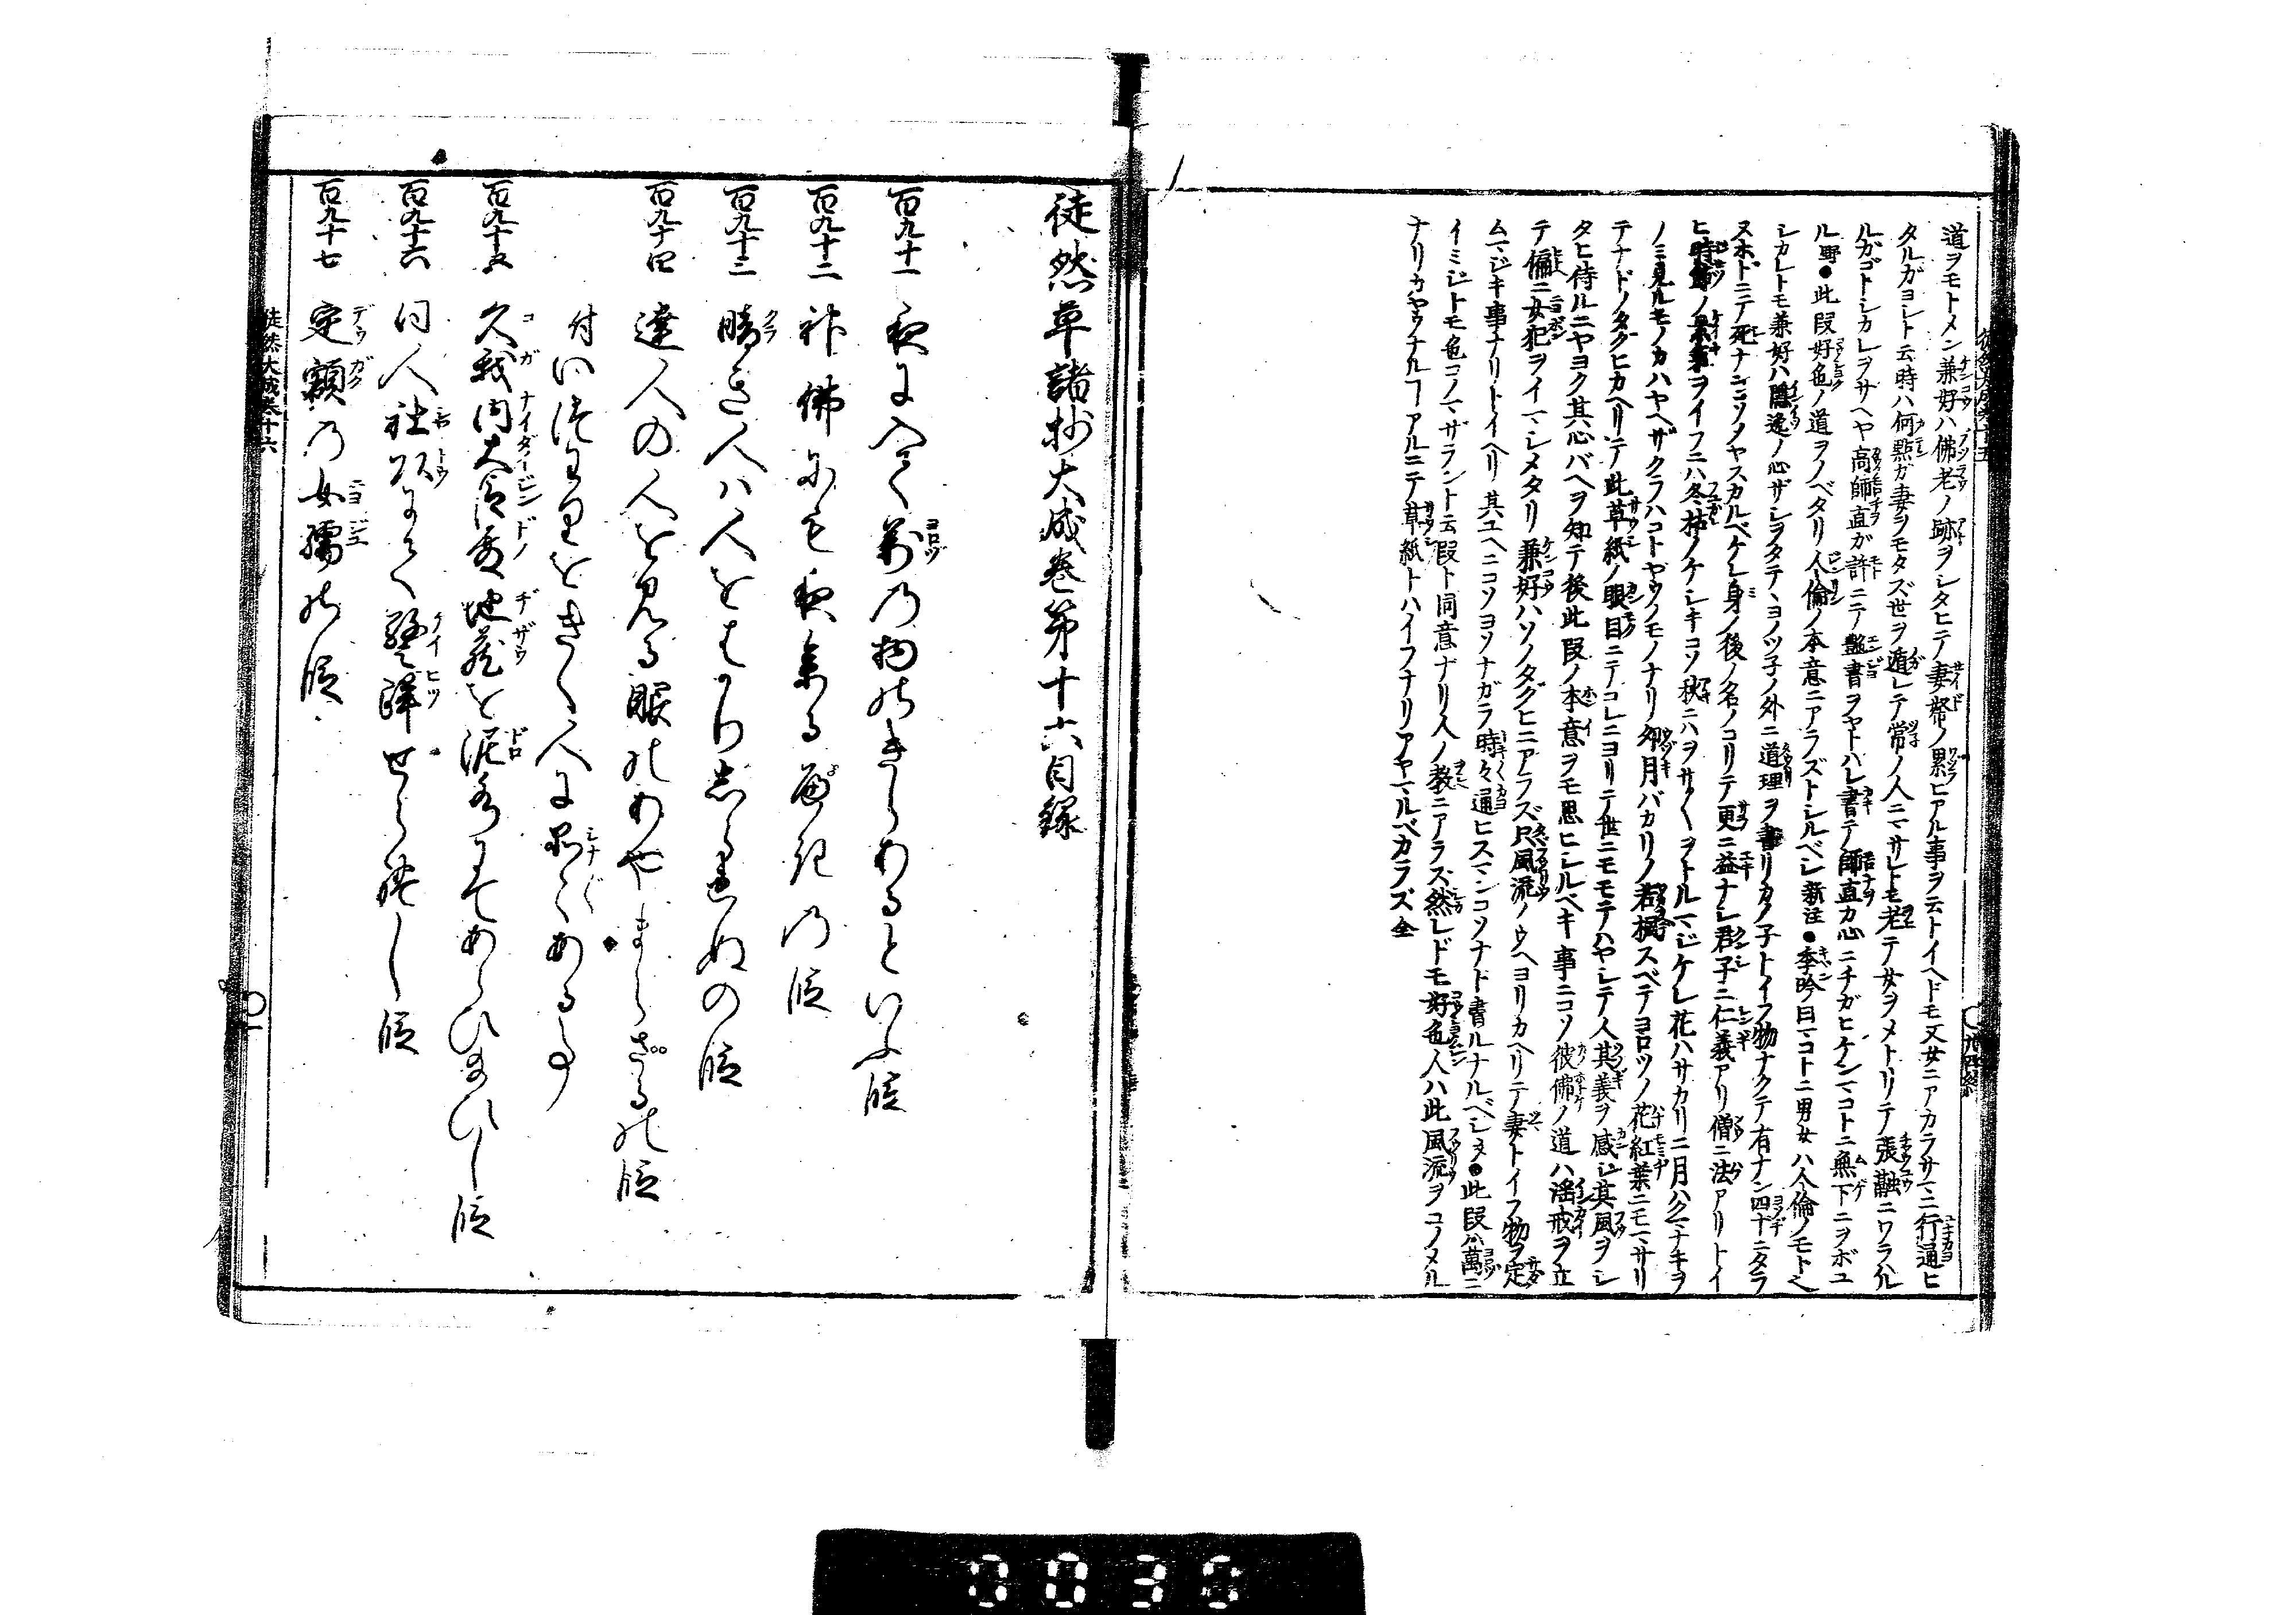 道ヲモトメン兼好ハ佛老ノ跡ヲシタヒテ妻帑ノ累ヒアル事ヲ云トイヘドモ又女ニアカラサマニ行通ヒ
タルガヨレト云時ハ何點ガ妻ヲモタズ世ヲ遁レテ常ノ人ニマサレトモ老テ女ヲメトリテ張融ニワラハル
ルガゴトシカレヲサヘヤ高師直ガ許ニテ艶書ヲヤトハレ書テ師直カ心ニチガヒケンマコトニ無下ニヲボユ
ル野●此段好色ノ道ヲノベタリ人倫ノ本意ニアラズトシルベシ新注●季吟曰マコトニ男女ハ人倫ノモト也
シカレトモ兼好ハ隠逸ノ心ザシヲタテヽヨノツ子ノ外ニ道理ヲ書リカノ子トイフ物ナクテ有ナン四十ニタラ
ヌホドニテ死ナンコソメヤスカルベケレ身ノ後ノ名ノコリテ更ニ益ナシ君子ニ仁義アリ僧ニ法アリトイ
ヒ時節ノ景氣ヲイフニハ冬枯ノケシキコソ秋ニハヲサ〱ヲトルマジケレ花ハサカリニ月ハクマナキヲ
ノミ見ルモノカハヤヘザクラハコトヤウノモノナリ卯月バカリノ若楓スベテヨロツノ花紅葉ニモマサリ
テナドノタグヒカヘリテ此草紙ノ眼目ニテコレニヨリテ世ニモモテハヤシテ人其義ヲ感シ其風ヲシ
タヒ侍ルニヤヨク其心バヘヲ知テ後此段ノ本意ヲモ思ヒシルベキ事ニコソ彼佛ノ道ハ淫戒ヲ立
テ偏ニ女犯ヲイマシメタリ兼好ハソノタグヒニアラズ只風流ノウヘヨリカヘリテ妻トイフ物ヲ定
ムマジキ事ナリトイヘリ其ユヘニコソヨソナガラ時々通ヒスマンコソナド書ルナルベシ●此段ハ萬ニ
イミジトモ色コノマザラント云段ト同意ナリ人ノ教ニアラス然レドモ好色人ハ此風流ヲコノメル
ナリカヤウナルコアルニテ草紙トハイフナリアヤマルベカラズ全
徒然草諸抄大成巻第十六目録
百九十一 夜に入て萬の物のきらあるといふ段
百九十二 神佛にも夜参る
百九十三 くらき人ハ人をはかりしるましきの段
百九十四 達人の人を見る眼のあやまらざるの段
付いつはりをきく人に品〱ある事
百九十五 久我内大臣殿地蔵を泥水にてあらひ給ひし段
百九十六 同人社頭にて警蹕せられし段
百九十七 定額の女孺の段
徒然大成巻十六